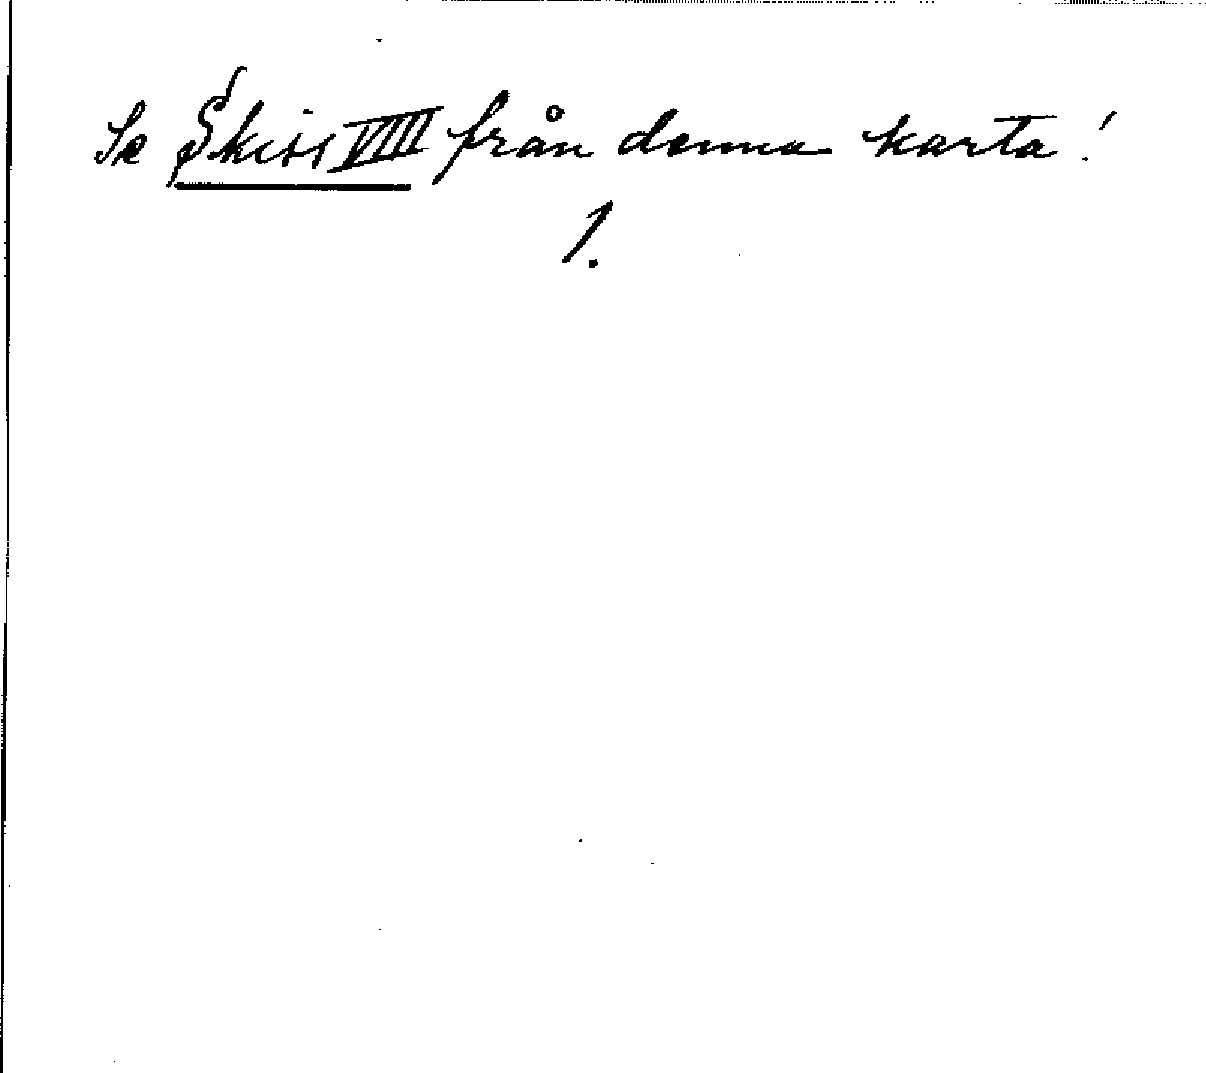 Se Skiss VIII från denna karta!
1.